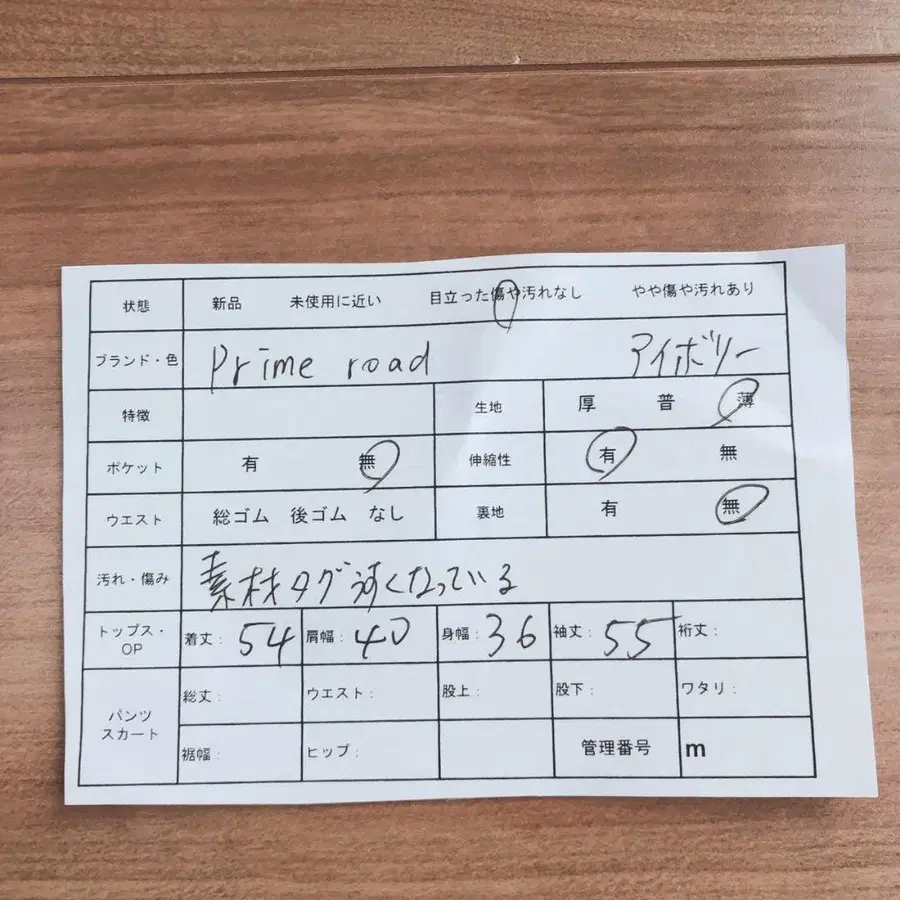 状態 新品 未使用に近い 目立った傷や汚れなし やや傷や汚れあり
ブランド・色 prime road アイボリー
特徴 生地 厚 普 薄
ポケット 有 無 伸縮性 有 無
ウエスト 総ゴム 後ゴム なし 裏地 有 無
汚れ・傷み 素材タグ薄くなっている
トップス・OP 着丈: 54 肩幅: 40 身幅: 36 袖丈: 55 裄丈:
パンツ スカート 総丈: ウエスト: 股上: 股下: ワタリ:
裾幅: ヒップ: 管理番号 m